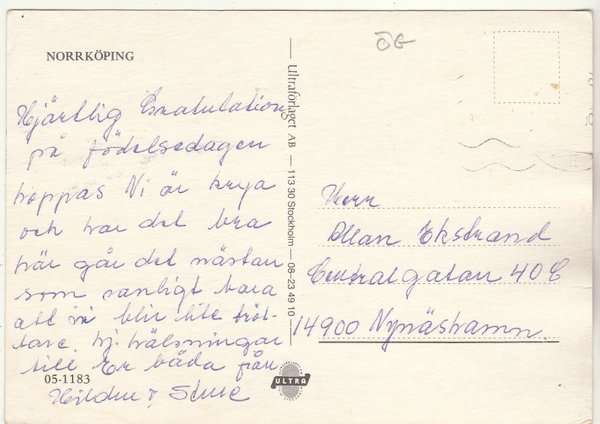 NORRKÖPING
Hjärtlig Gratulation
på födelsedagen
hoppas Ni är krya
och har det bra
här går det nästan
som vanligt bara
att vi blir lite tröt-
tare. Hj. hälsningar
till Er båda från
05-1183
Ultraförlaget AB — 113 30 Stockholm — 08-23 49 10
ULTRA
ÖG
Herr
Allan Ekstrand
Centralgatan 40C
14900 Nynäshamn.